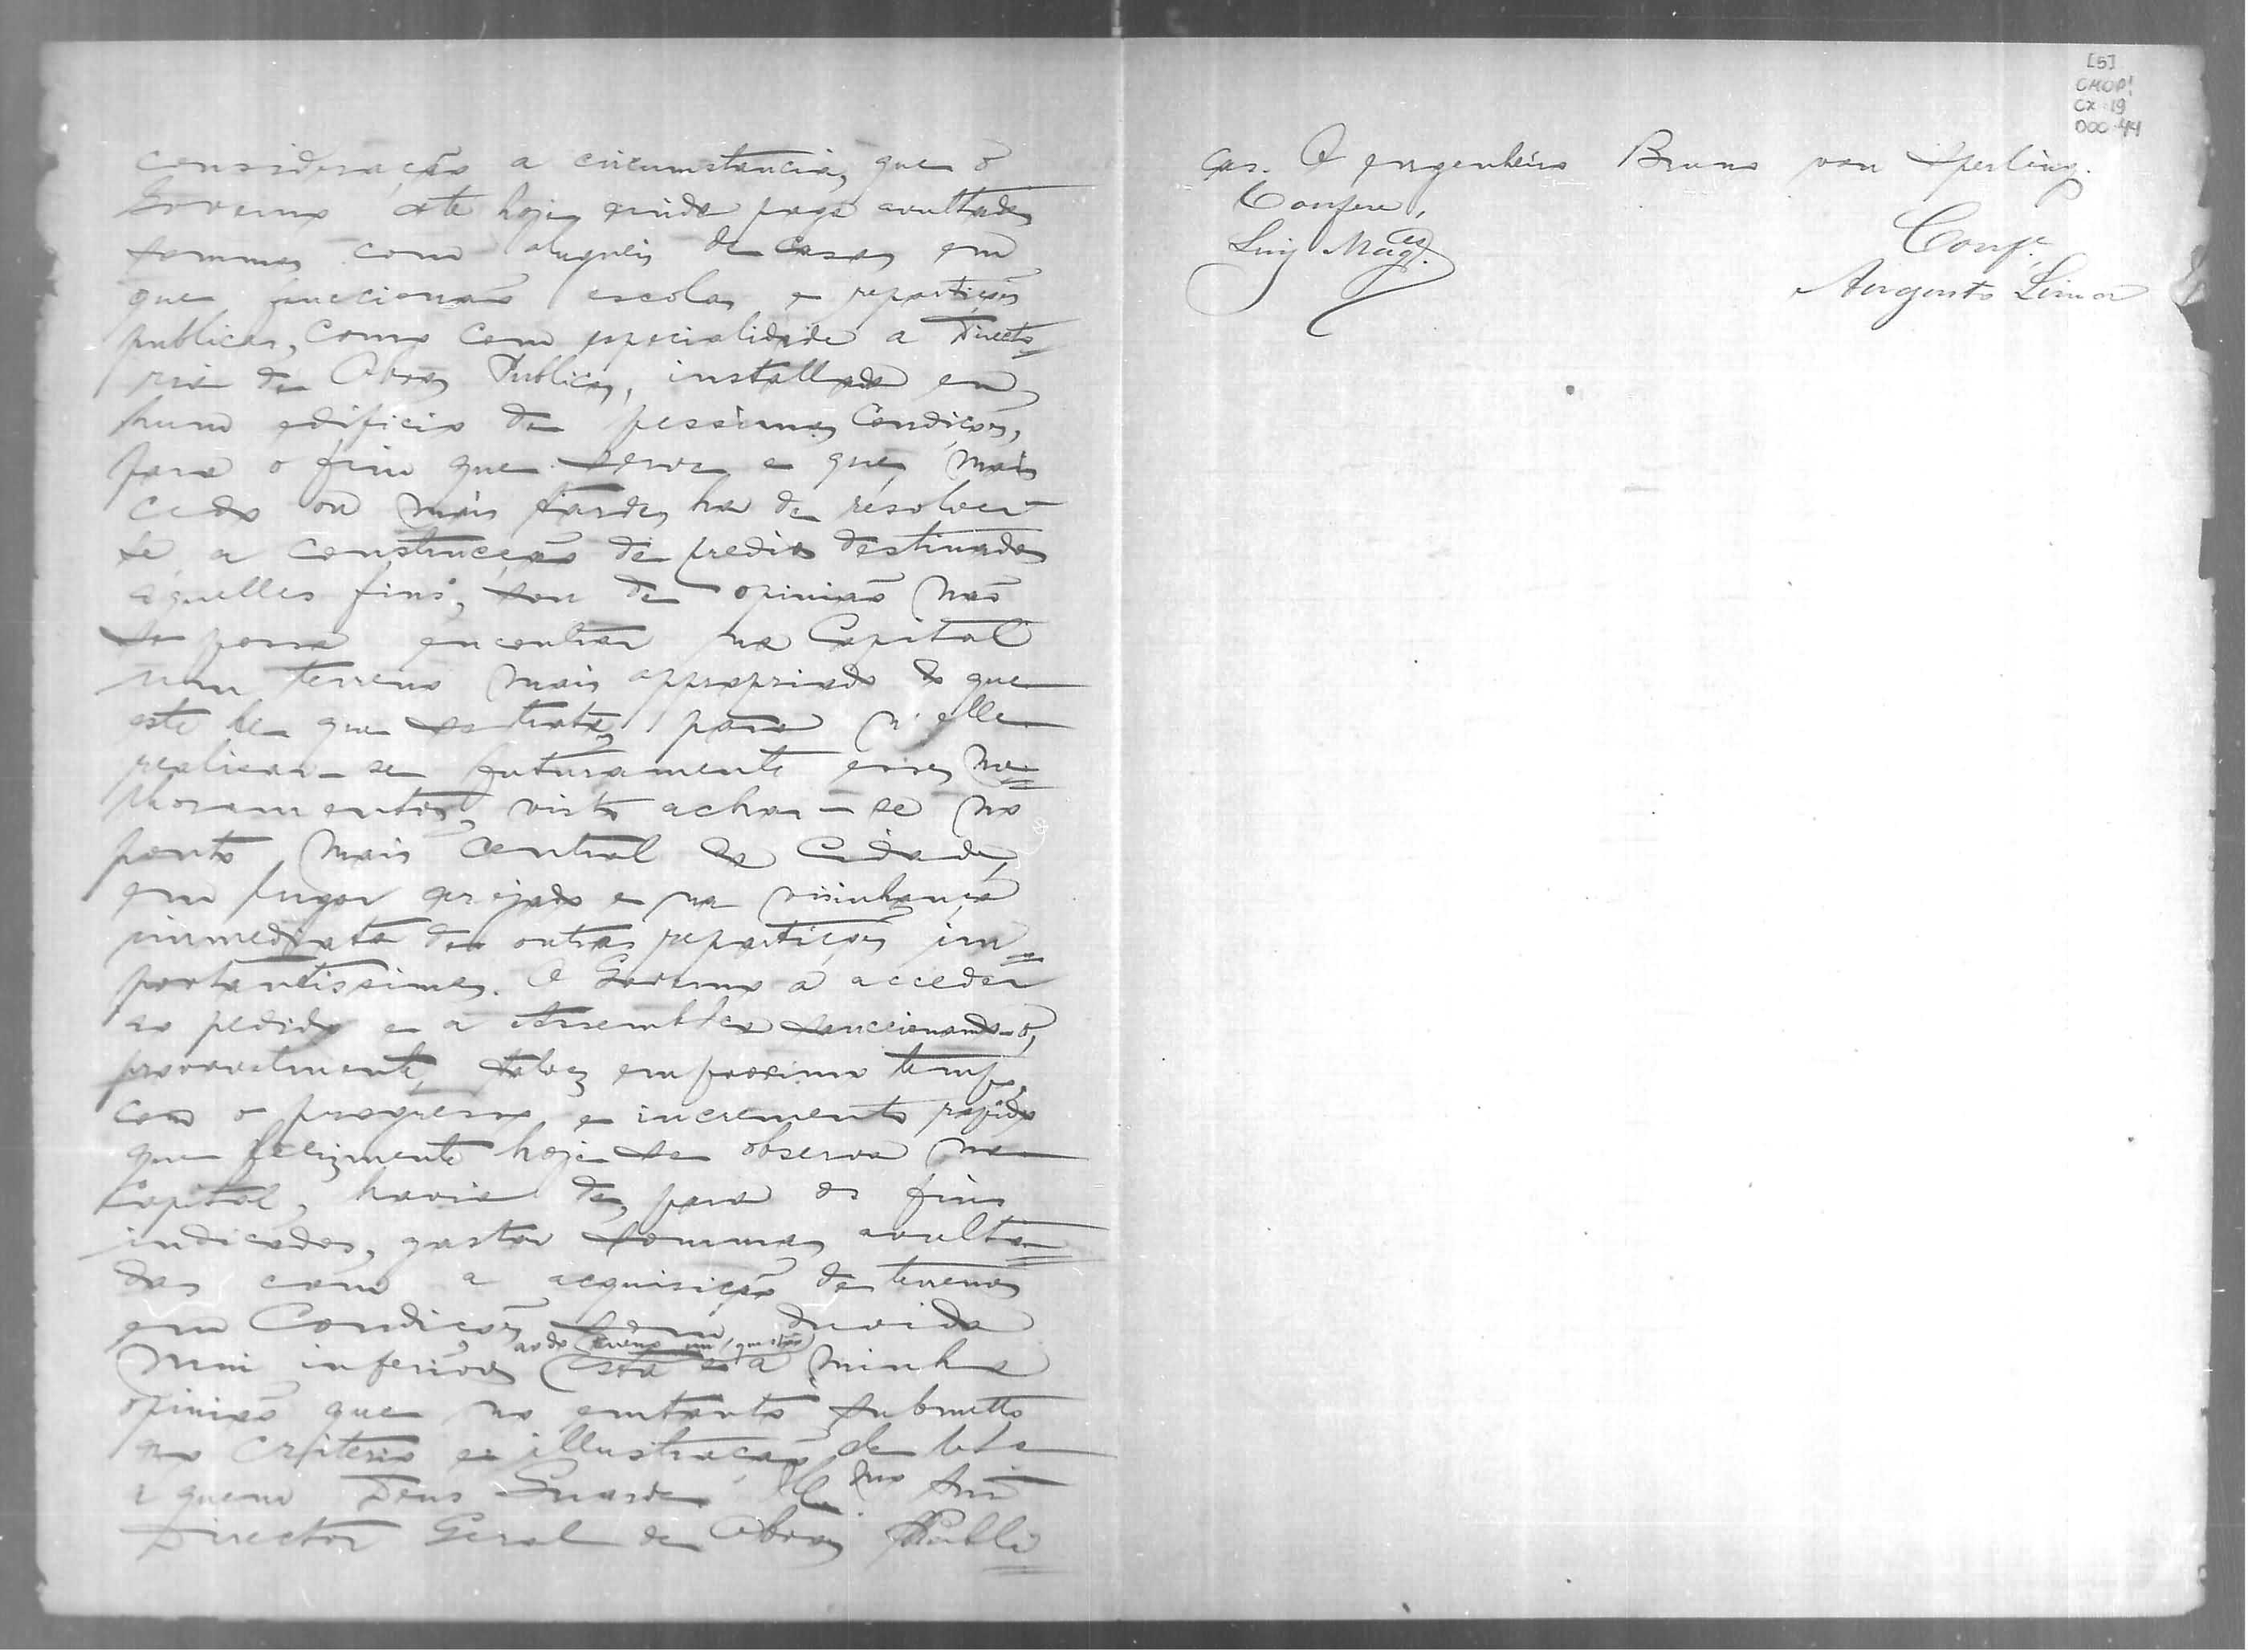 consideração a circumstancia, que o
Governo até hoje, ainda paga avultadas
sommas com alugueis de casas em
que funccionão escolas e repartições
publicas, como com especialidade a Directo=
ria de Obras Publicas, installada em
hum edificio de pessimas condições,
para o fim que serve e que, mais
cedo ou mais tarde, ha de resolver-
se a construcção de predios destinados
áquelles fins, sou de opinião não
se possa encontrar na Capital
um terreno mais appropriado do que
este de que se trata, para n'elle
realisar-se futuramente esses me=
lhoramentos, visto achar-se no
ponto mais central da Cidade,
em lugar arejado e na visinhança
immediata das outras repartições im=
portantissimas. O Governo a acceder
ao pedido e a Assemblea sanccionando-o,
provavelmente, talvez em proximo tempo,
com o progresso e incremento rapido
que felizmente hoje se observa na
Capital, havia de, para os fins
indicados, gastar sommas avulta=
das com a acquisição de terrenos
em condições sem duvida
ao do terreno em questão
mui inferiores Esta é a minha
opinião que no entanto submetto
ao criterio e illustração de
a quem Deus Guarde. Ill.mo Snr
Director Geral de Obras Publi=
[5]
CMOP!
CX. 19
DOC. 44
cas. O engenheiro Bruno von Sperling.
Confere,
Luiz Mag.es
Conf.e
Augusto Lima